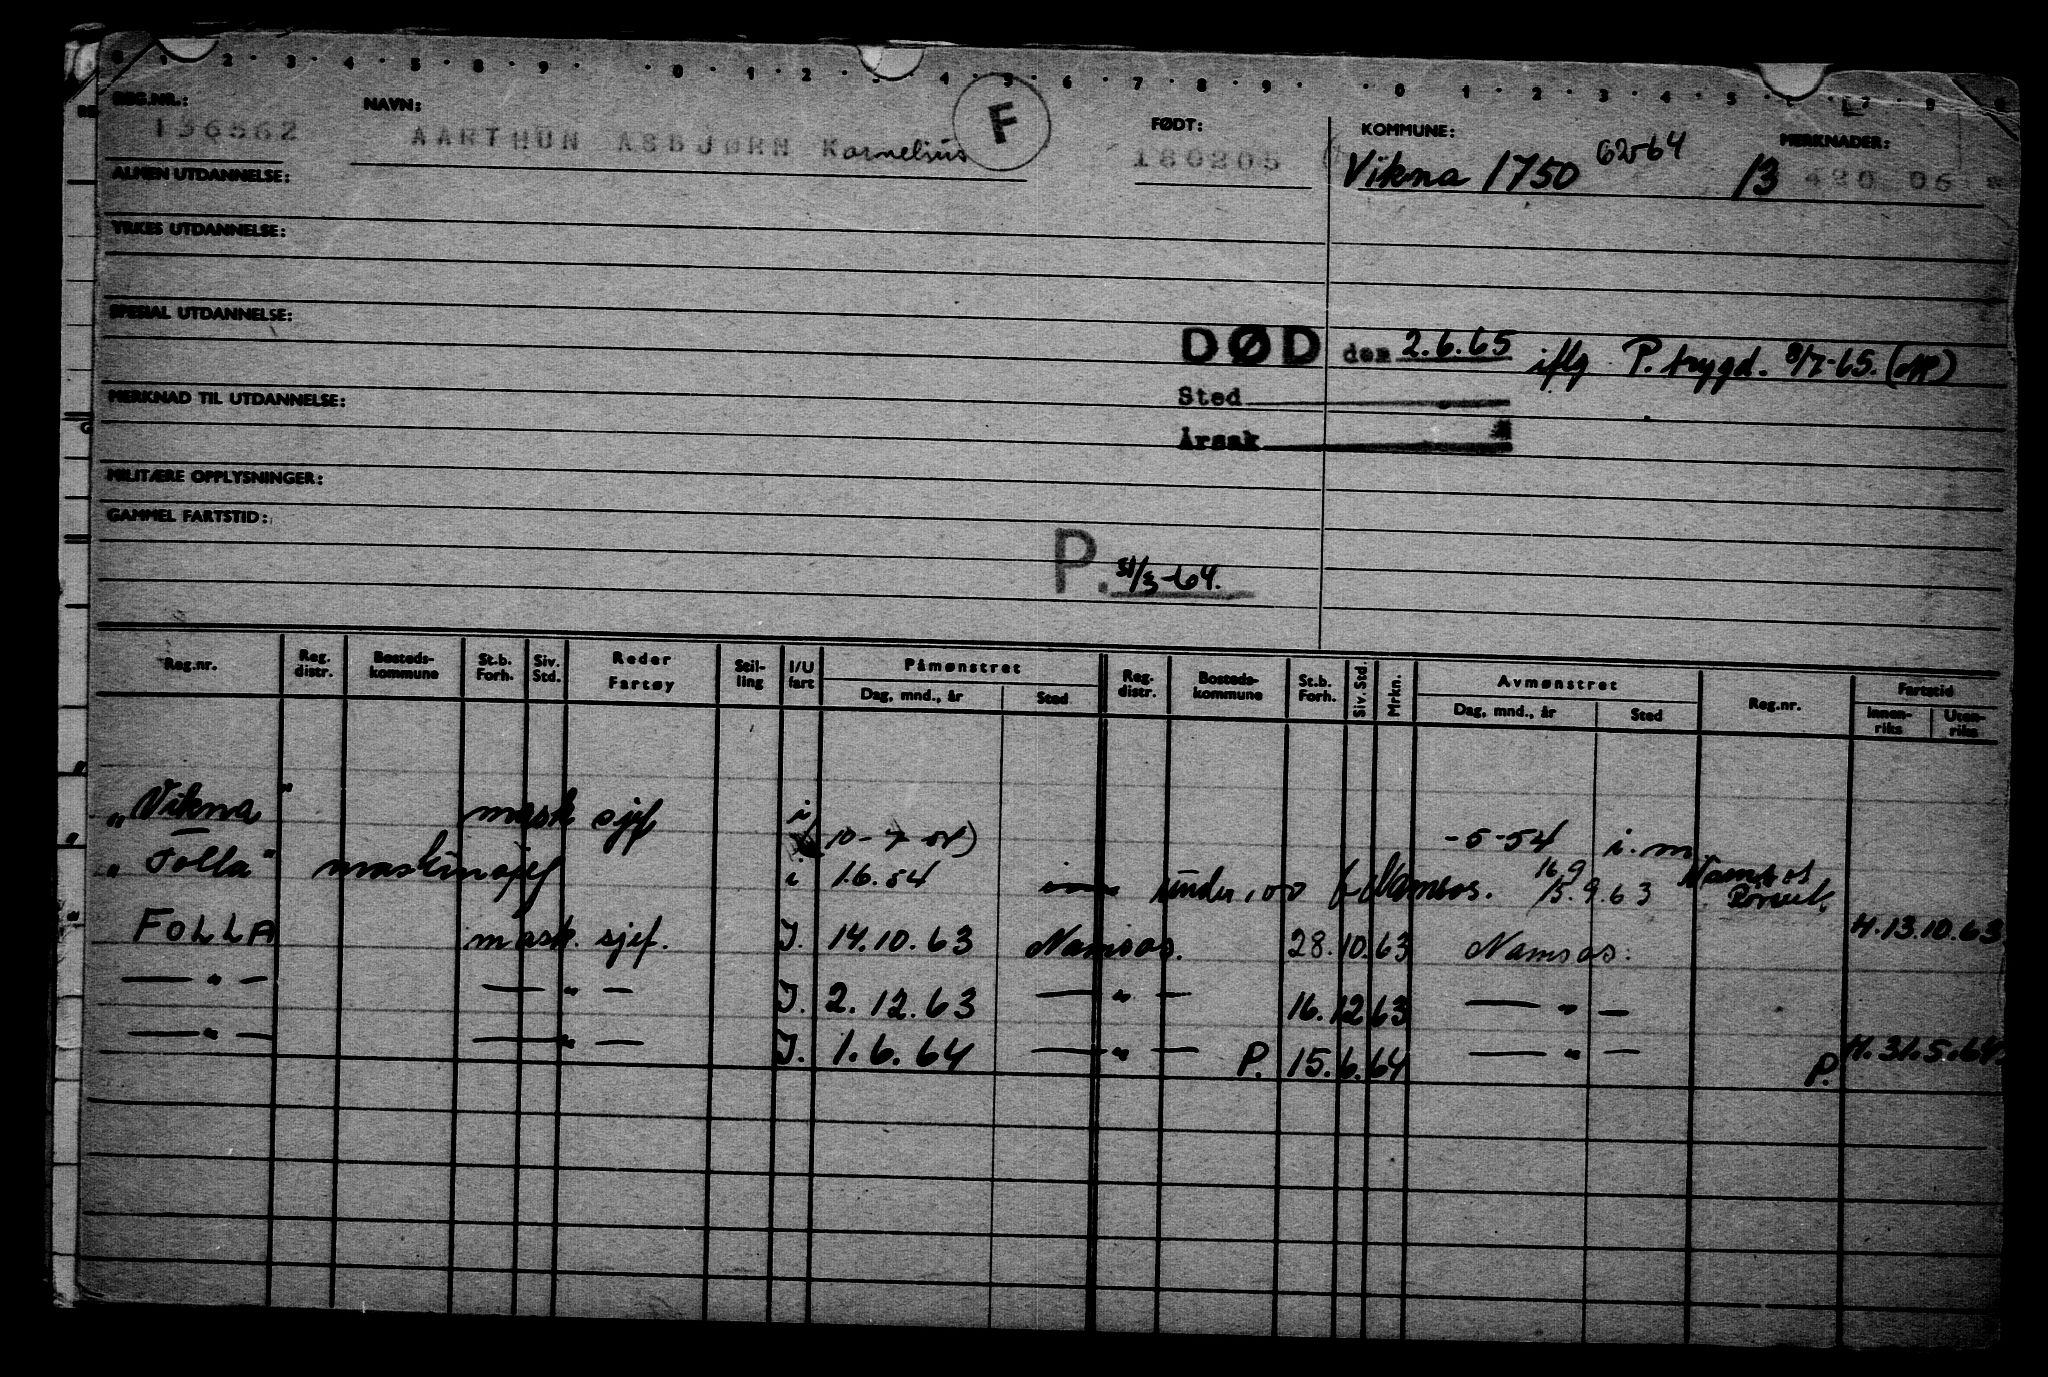 0 1 2 3 4 5 8 9 0 1 2 3 4 5 6 7 8 9 0 1 2 3 4 5 7
REG.NR.: NAVN: FØDT: KOMMUNE: MERKNADER:
136562 AARTHUN ASBJØRN Kornelius F 180205 Vikna 1750 62-64 13 420 06
ALMEN UTDANNELSE:
YRKES UTDANNELSE:
SPESIAL UTDANNELSE:
DØD den 2.6.65 iflg. P.trygd. 8/7-65.
MERKNAD TIL UTDANNELSE:
Sted
Årsak
MILITÆRE OPPLYSNINGER:
GAMMEL FARTSTID:
P. 31/3-64.
Reg.nr. Reg. distr. Bosteds-kommune St.b. Forh. Siv. Std. Reder Fartøy Stil-ling I/U fart Påmønstret Dag, mnd., år Sted Reg. distr. Bosteds-kommune St.b. Forh. Siv. Std. Mrkn. Avmønstret Dag, mnd., år Sted Reg.nr. Fartstid Innen-riks Uten-riks
"Vikna" mask sjef i 10-7- -5-54 i.m
"Folla" maskinsjef i 1.6.54 under 100 Namsos. 16.9 15.9.63 Namsos Rørvik.
FOLLA mask. sjef. I. 14.10.63 Namsos. 28.10.63 Namsos. H.13.10.63
— " — — " — I. 2.12.63 — " — 16.12.63 — " —
— " — — " — I. 1.6.64 — " — P. 15.6.64 — " — P. H.31.5.64.